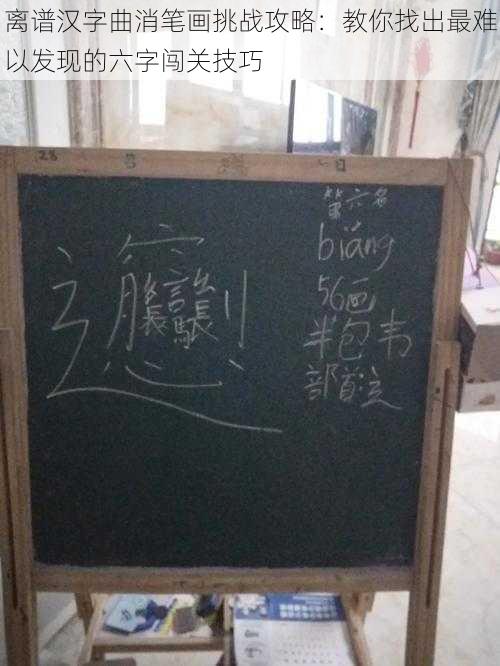 离谱汉字曲消笔画挑战攻略：教你找出最难
以发现的六字闯关技巧
28
𰻞
第六名
biáng
56画
半包韦
部首辶